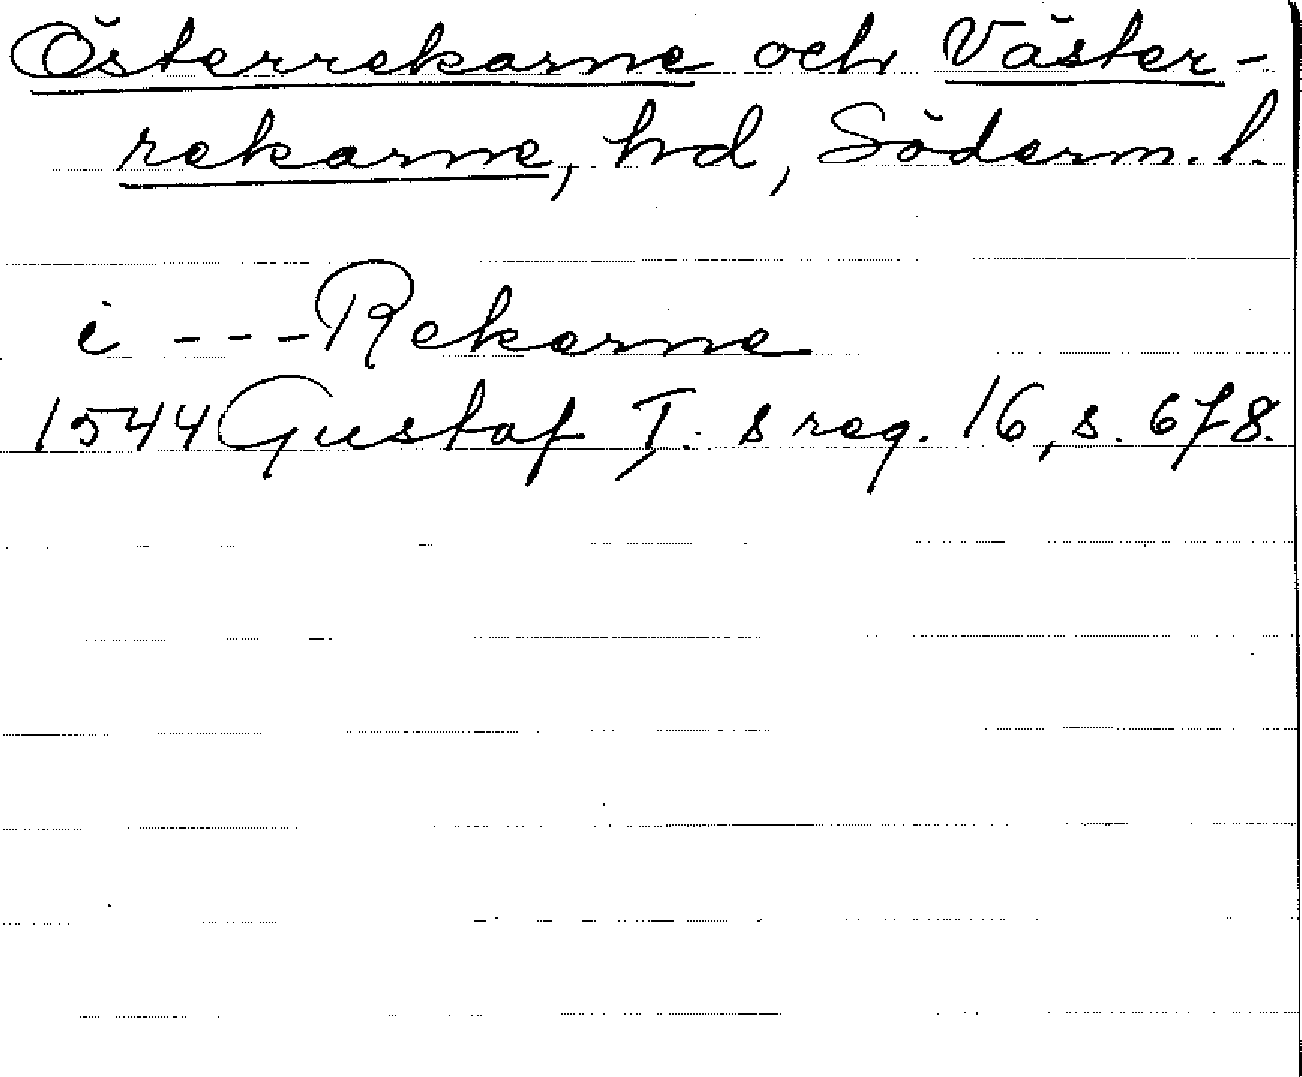 Österrekarne och Väster-
rekarne, hd, Söderm. l.
i --- Rekarne
1544 Gustaf I:s reg. 16, s. 678.